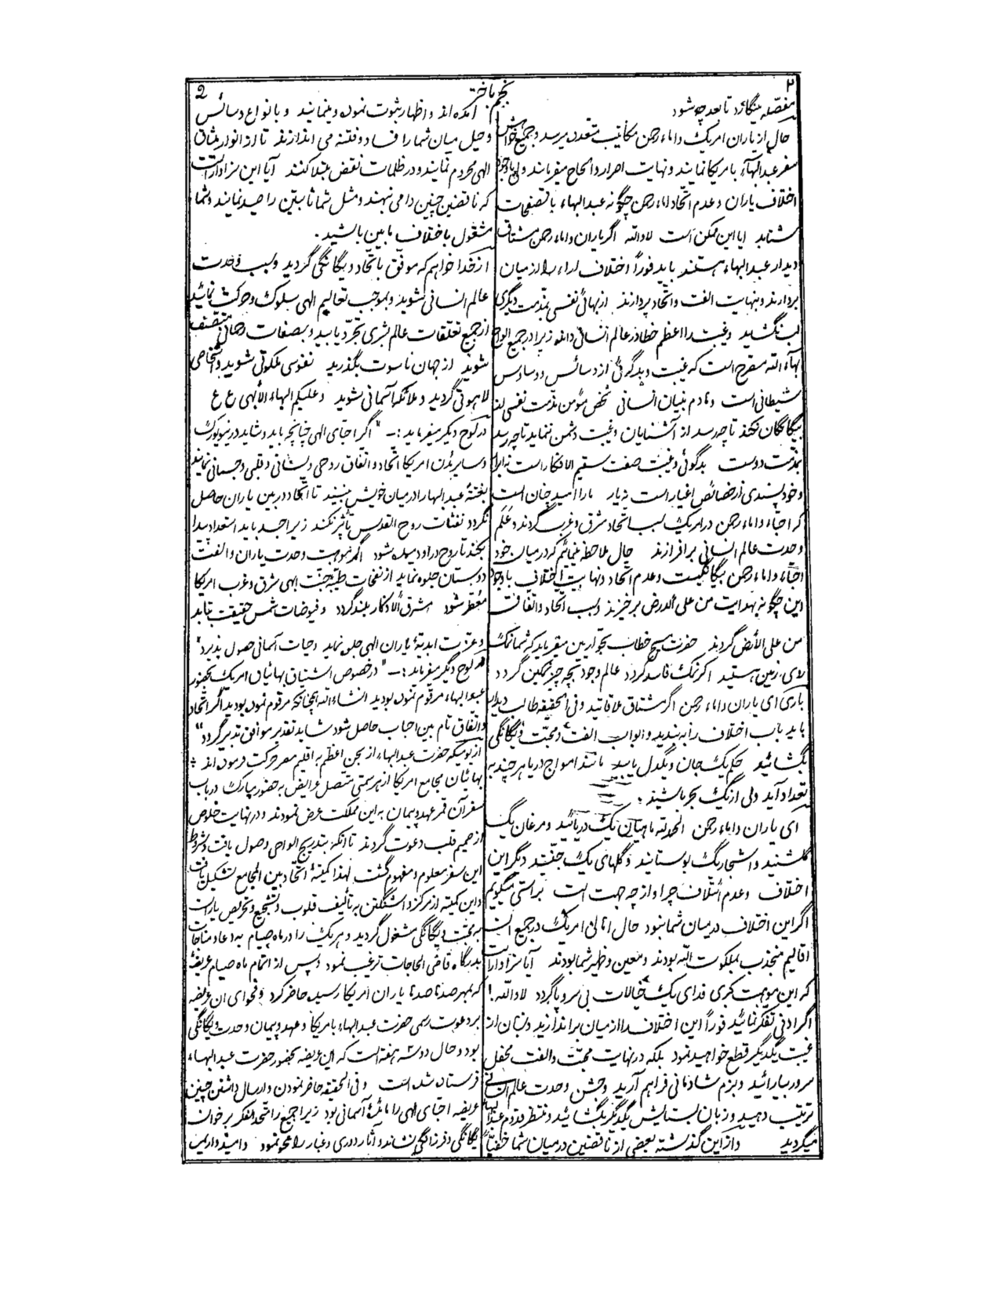 ۲
نجم باختر
2
مفصّله مینگارد تا بعد چه شود
حال از یاران امریک و اماء رحمن مکاتیب متعدده میرسد و جمیع خواهش
سفر عبدالبهاء بامریکا نمایند و نهایت اصرار و الحاح میفرمایند ولی با وجود
اختلاف یاران و عدم اتحاد اماء رحمن چگونه عبدالبهاء بآنصفحات
شتابد آیا این ممکن است لا والله اگر یاران و اماء رحمن مشتاق
دیدار عبدالبهاء هستند باید فوراً اختلاف آراء را از میان
بردارند و بنهایت الفت و اتّحاد پردازند ابداً نفسی بمذمّت دیگری
لب نگشاید و غیبت را اعظم خطا در عالم انسانی داند زیرا در جمیع الواح
بهاءالله مصرّح است که غیبت و بدگوئی از دسائس و وساوس
شیطانی است و هادم بنیان انسانی شخص مؤمن مذمّت نفسی از
بیگانگان نکند تا چه رسد از آشنایان و غیبت دشمن ننماید تا چه رسد
بمذمّت دوست بدگوئی و غیبت صفت سقیم الافکار است نه ابرار
و خودپسندی از خصائص اغیار است نه یار ما را امید چنان است
که احبّاء و اماء رحمن در امریک سبب اتحاد شرق و غرب گردند و علم
وحدت عالم انسانی برافرازند حال ملاحظه مینمائیم که در میان خود
احبّاء و اماء رحمن بیگانگیست و عدم اتّحاد و نهایت اختلاف با وجود
این چگونه بهدایت من علی الارض برخیزند و سبب اتحاد و اتفاق
من علی الأرض گردند حضرت مسیح خطاب بحواریین میفرماید که شما نمک
روی زمین هستید اگر نمک فاسد گردد عالم وجود بچه چیز نمکین گردد
باری ای یاران و اماء رحمن اگر مشتاق ملاقاتید و فی الحقیقه طالب دیدار
باید باب اختلاف را به بندید و ابواب الفت و محبّت و یگانگی
بگشائید حکم یک جان و یکدل یابید مانند امواج دریا هر چند به
تعداد آید ولی از یک بحر باشید؛
ای یاران و اماء رحمن الحمد لله ماهیان یک دریائید و مرغان یک
گلشنید و اشجار یک بوستانید و گلهای یک چمنید دیگر این
اختلاف و عدم ائتلاف چرا و از چه جهت است براستی میگویم
اگر این اختلاف در میان شما نبود حال اهالی امریک در جمیع
اقالیم منجذب بملکوت الله بودند و معین و ظهیر شما بودند آیا سزاوار است
که این موهبت کبری فدای یک خیالات بی سر و پا گردد لا والله !
اگر ادنی تفکّر نمائید فوراً این اختلاف را از میان براندازید و لسان از
غیبت یکدیگر قطع خواهید نمود بلکه در نهایت محبّت و الفت محفل
سرور بیارائید و بزم شادمانی فراهم آرید و جشن وحدت عالم انسانی
ترتیب دهید و زبان بستایش یکدیگر بگشائید و منتظر قدوم عبدالبهاء
میگردید و از این گذشته بعضی از ناقضین در میان شما خفیّاً
آمده‌اند و اظهار ثبوت نموده و مینمایند و بانواع دسائس
و حیل میان شما را فساد و فتنه می‌اندازند تا از انوار میثاق
الهی محروم نمایند و در ظلمات نقض مبتلا کنند آیا این سزاوار است
که ناقضین چنین دامی نهند و مثل شما ثابتین را صید نمایند و شما
مشغول باختلاف مابین باشید.
از خدا خواهم که موفّق باتحاد و یگانگی گردید و سبب وحدت
عالم انسانی شوید و بموجب تعالیم الهی سلوک و حرکت نمائید
از جمیع تعلّقات عالم بشری تجرّد یابید و بصفات رحمانی متّصف
شوید از جهان ناسوت بگذرید نفوسی ملکوتی شوید و اشخاصی
لاهوتی گردید و ملائکه آسمانی شوید و علیکم البهاء الأبهی ع ع
در لوح دیگر میفرماید :ـ "اگر احبّای الهی چنانچه باید و شاید در نیویورک
و سایر مدن امریکا اتّحاد و اتفاق روحی و لسانی و قلبی و جسمانی نمایند
بغتةً عبدالبهاء را در میان خویش بینند تا اتّحاد در بین یاران حاصل
نگردد نفثات روح القدس تأثیر نکند زیرا جسد باید استعداد پیدا
بکند تا روح در او دمیده شود اگر موهبت وحدت یاران و الفت
دوستان جلوه نماید از نفحات طیّبه جنّت ابهی شرق و غرب امریکا
معطّر شود مشرق الأذکار بلند گردد و فیوضات شمس حقیقت بتابد
و عزّت ابدیّهٔ یاران الهی جلوه نماید و حیات آسمانی حصول پذیرد"
در لوح دیگر میفرماید :ـ "در خصوص اشتیاق بهائیان امریک بحضور
عبدالبهاء مرقوم نموده بودید انشاءالله همچنانچه مرقوم نموده بودید اگر اتّحاد
و اتّفاق تام بین احباب حاصل شود شاید تقدیر موافق تدبیر گردد"
از یومیکه حضرت عبدالبهاء از سجن اعظم به اقلیم مصر حرکت فرموده‌اند
بهائیان مجامع امریکا از هر سمتی متّصل عرایض به حضور مبارک در باب
سفر آن قمر عهد و پیمان به این مملکت عرض نمودند و در نهایت خلوص
از صمیم قلب دعوت گردند تا آنکه بتدریج الواحی وصول یافت و شروط
این سفر معلوم و مفهوم گشت لهذا کمیتهٔ اتّحاد بین المجامع تشکیل یافت
و این کمیته از مرکز واشنگتن به تألیف قلوب و تشجیع و تحریص یاران
به محبّت و یگانگی مشغول گردید و هر یک را در ماه صیام به دعا و مناجات
بدرگاه قاضی الحاجات ترغیب نمود و پس از اتمام ماه صیام عریضهٔ
که بمهر صدها یاران امریکا رسیده حاضر کرد و فحوای این عریضه
بر دعوت رسمی حضرت عبدالبهاء بامریکا و عهد و پیمان وحدت و یگانگی
بود و حال دو سه هفته است که این عریضه بحضور حضرت عبدالبهاء
فرستاده شده است و فی الحقیقه حاضر نمودن و ارسال داشتن چنین
عریضه احبّای الهی را مائدهٔ آسمانی بود زیرا جمیع را متّحداً و متفکّر بر خوان
یگانگی و فرزانگی نشاند و آثار دوری و غبار را محو نمود و امید داریم